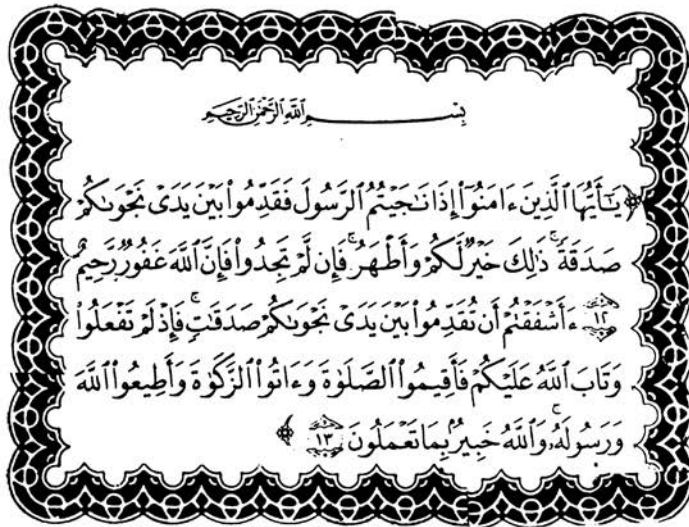 بِسْمِ ٱللَّهِ ٱلرَّحْمَٰنِ ٱلرَّحِيمِ
يَٰٓأَيُّهَا ٱلَّذِينَ ءَامَنُوٓا۟ إِذَا نَٰجَيْتُمُ ٱلرَّسُولَ فَقَدِّمُوا۟ بَيْنَ يَدَىْ نَجْوَىٰكُمْ
صَدَقَةً ۚ ذَٰلِكَ خَيْرٌ لَّكُمْ وَأَطْهَرُ ۚ فَإِن لَّمْ تَجِدُوا۟ فَإِنَّ ٱللَّهَ غَفُورٌ رَّحِيمٌ
١٢ ءَأَشْفَقْتُمْ أَن تُقَدِّمُوا۟ بَيْنَ يَدَىْ نَجْوَىٰكُمْ صَدَقَٰتٍ ۚ فَإِذْ لَمْ تَفْعَلُوا۟
وَتَابَ ٱللَّهُ عَلَيْكُمْ فَأَقِيمُوا۟ ٱلصَّلَوٰةَ وَءَاتُوا۟ ٱلزَّكَوٰةَ وَأَطِيعُوا۟ ٱللَّهَ
وَرَسُولَهُۥ ۚ وَٱللَّهُ خَبِيرٌۢ بِمَا تَعْمَلُونَ ١٣